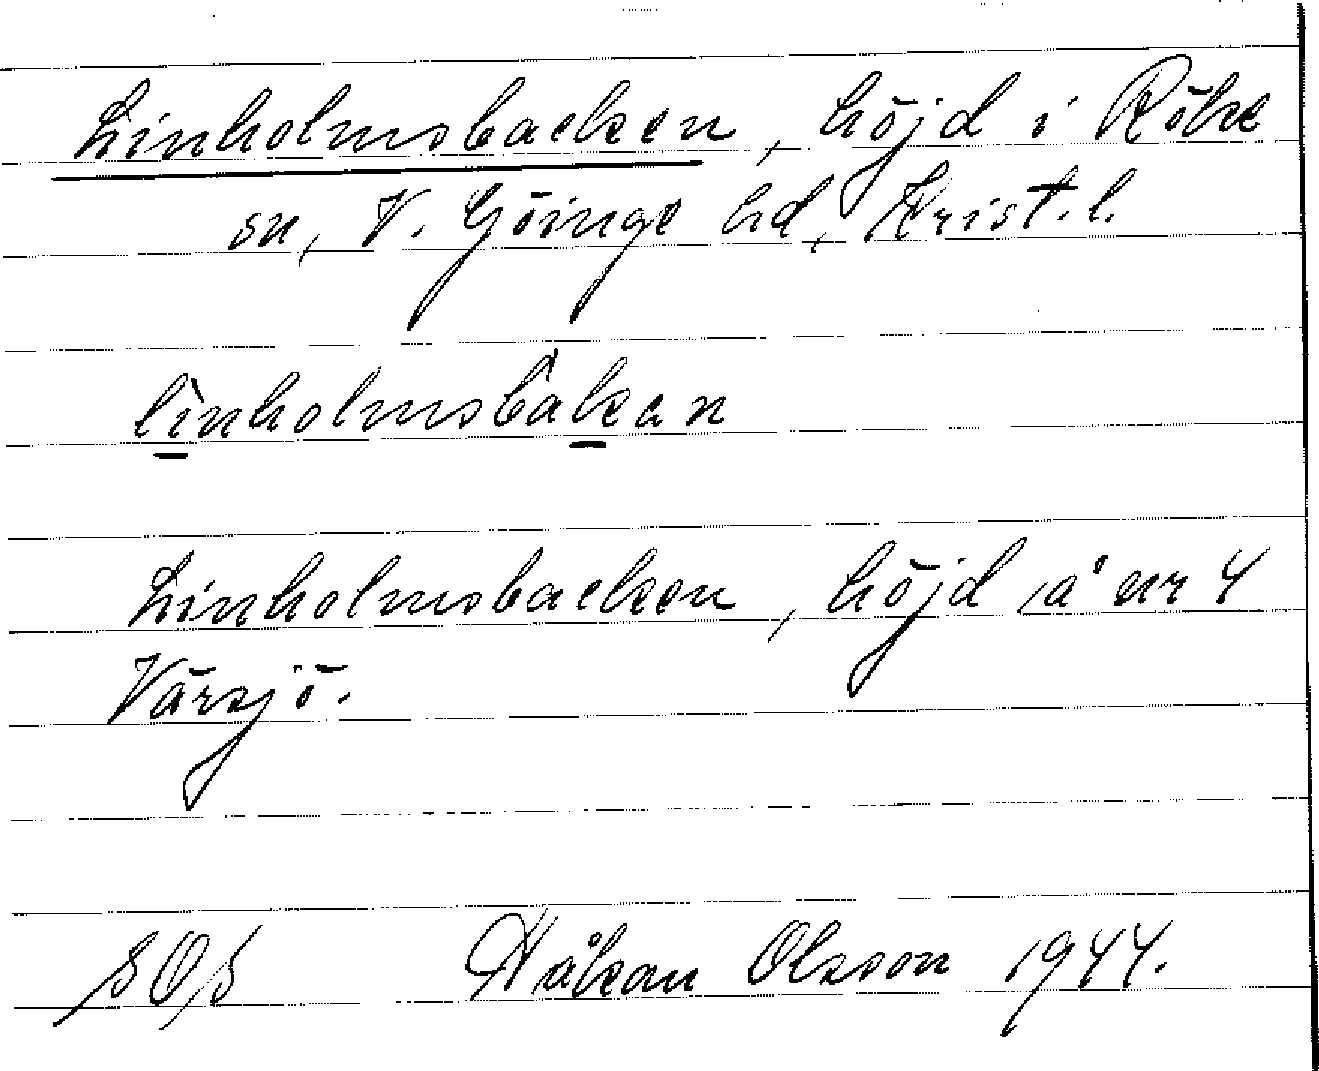 Linholmsbacken, höjd i Röke
sn, V. Göinge hd, Krist. l.
lìnholmsbákan
Linholmsbacken, höjd å nr 4
Värsjö.
SOS Håkan Olsson 1944.